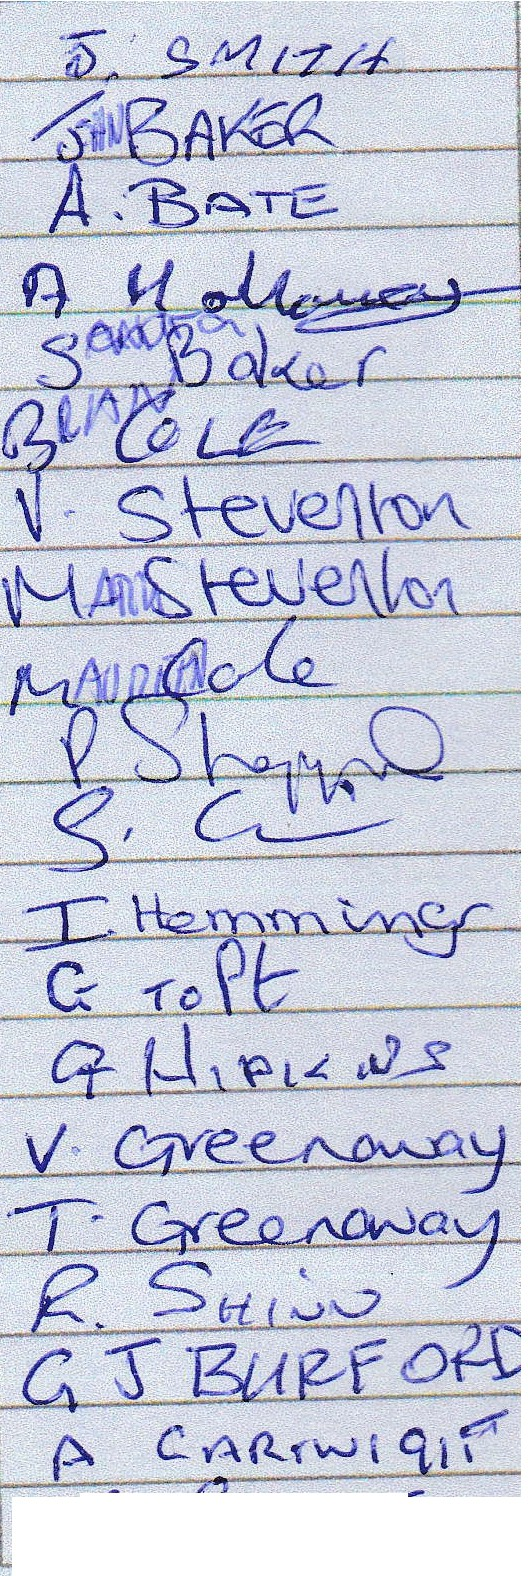 J. SMITH
JOHN BAKER
A. BATE
A Holloway
SANDRA Baker
BRIAN COLE
V. Steventon
MARK Steventon
MAUREEN Cole
P Sheppard
S.
I. Hemmings
G TOFT
G HIPKINS
V. Greenaway
T. Greenaway
R. SHINN
G J BURFORD
A CARTWRIGHT